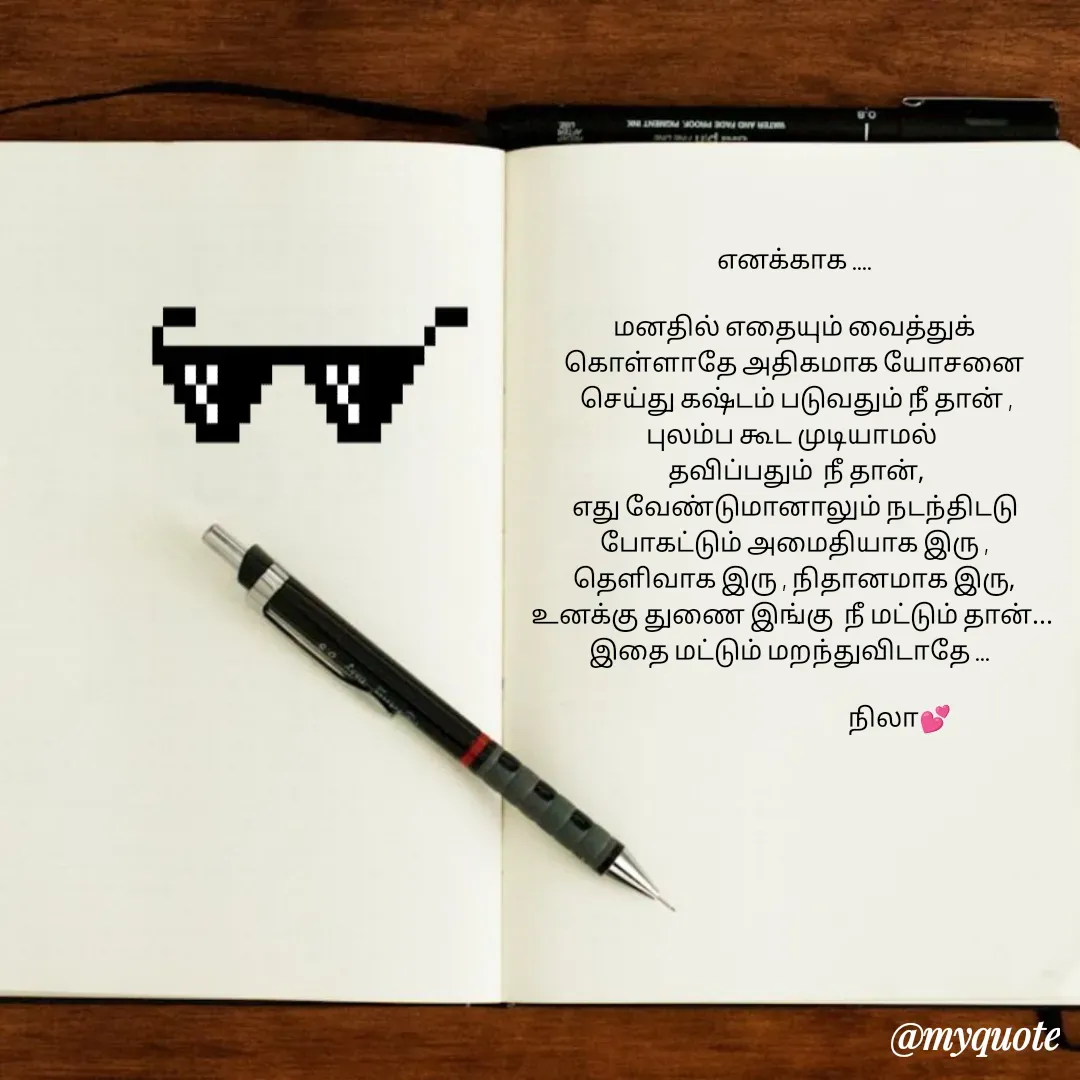 WATER AND FADE PROOF, PIGMENT INK
0.8
எனக்காக ....
மனதில் எதையும் வைத்துக்
கொள்ளாதே அதிகமாக யோசனை
செய்து கஷ்டம் படுவதும் நீ தான் ,
புலம்ப கூட முடியாமல்
தவிப்பதும் நீ தான்,
எது வேண்டுமானாலும் நடந்திடடு
போகட்டும் அமைதியாக இரு ,
தெளிவாக இரு , நிதானமாக இரு,
உனக்கு துணை இங்கு நீ மட்டும் தான்...
இதை மட்டும் மறந்துவிடாதே ...
நிலா💕
@myquote